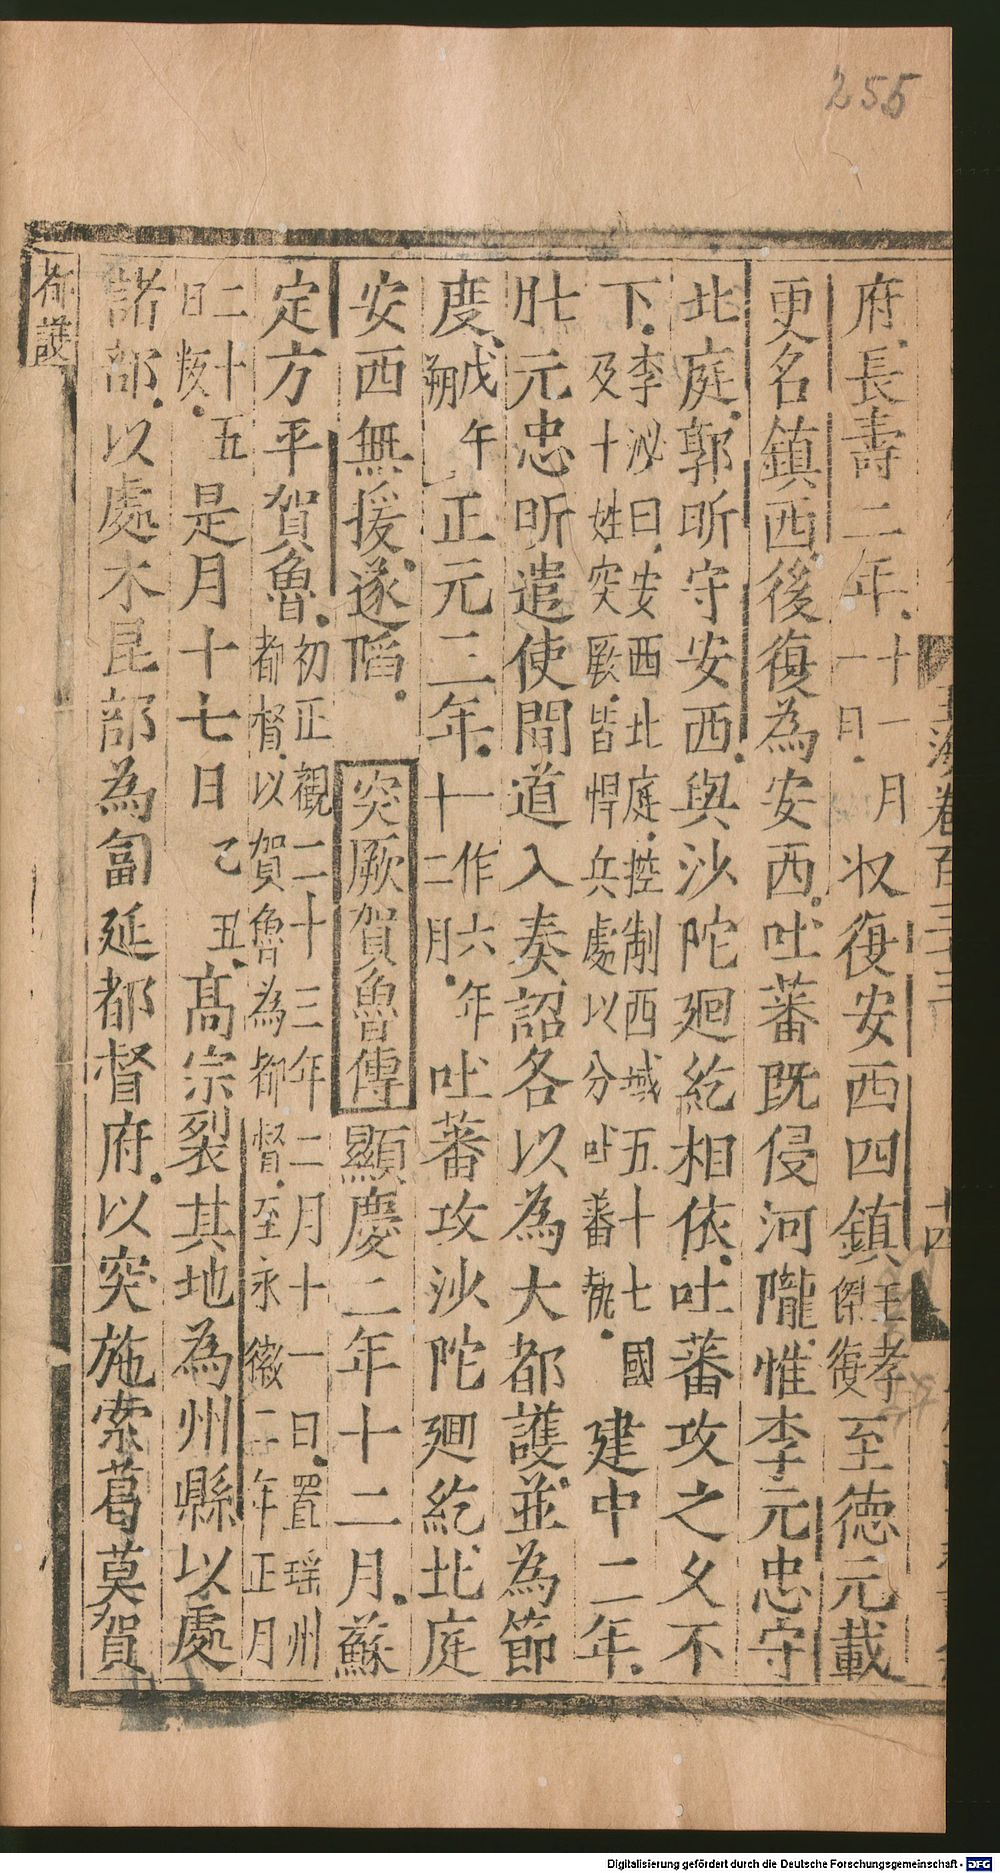 255
府長壽二年十一月一日收復安西四鎮王孝傑復至德元載
更名鎮西後復為安西吐蕃既侵河隴惟李元忠守
北庭郭昕守安西與沙陀廻紇相依吐蕃攻之久不
下李泌曰安西北庭控制西域五十七國及十姓突厥皆悍兵處以分吐蕃埶建中二年
肚元忠昕遣使間道入奏詔各以為大都護並為節
度戊午朔正元三年十二月一作六年吐蕃攻沙陀廻紇北庭
安西無援遂陷突厥賀魯傳顯慶二年十二月蘇
定方平賀魯初正觀二十三年二月十一日置瑶州都督以賀魯為都督至永徽二年正月
二十五日叛是月十七日乙丑高宗裂其地為州縣以處
諸部以處木昆部為匐延都督府以突施索葛莫賀
都護
玉海卷百三十三
十四
Digitalisierung gefördert durch die Deutsche Forschungsgemeinschaft - DFG